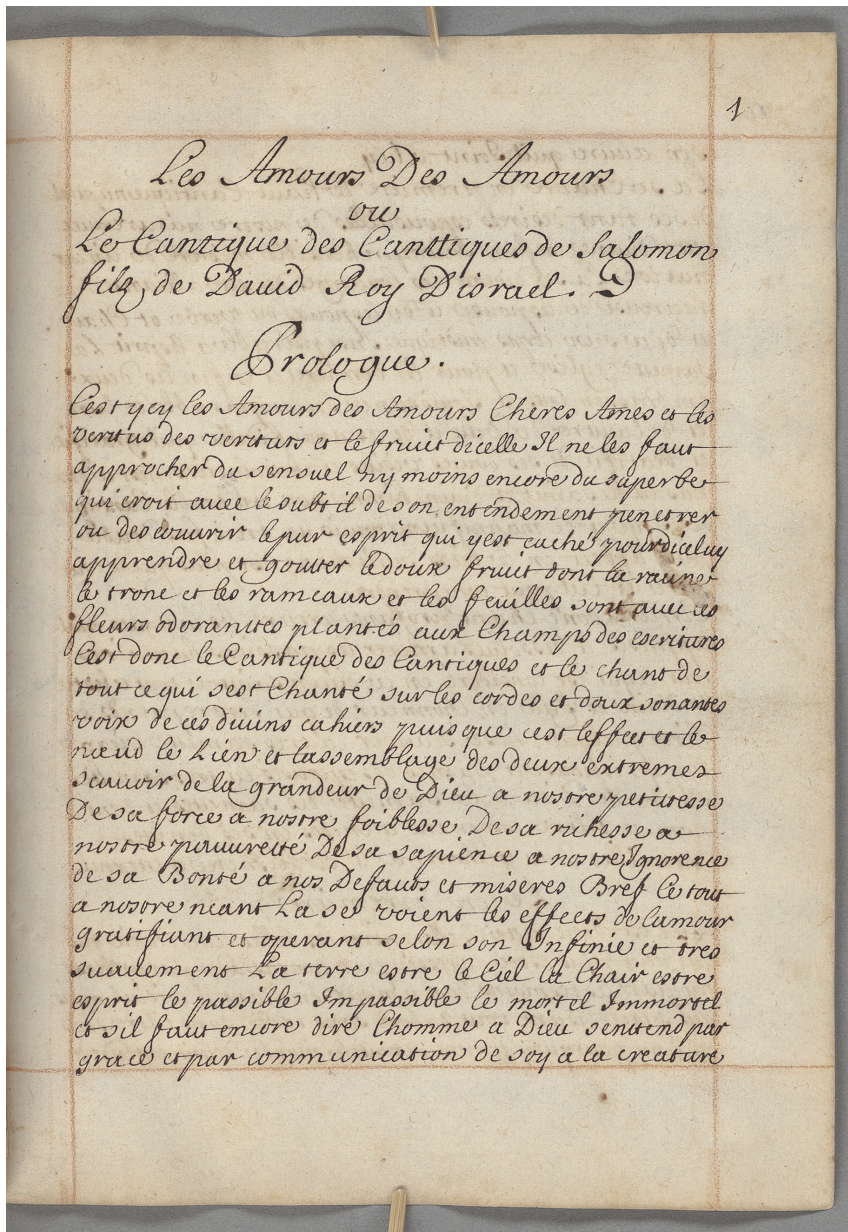 1
Les Amours Des Amours
ou
Le Cantique des Canttiques de Salomon
filz de Dauid Roy Disrael.
Prologue.
Cest ycy les Amours des Amours Cheres Ames et les
veritus des verituts et le fruict dicelle Il ne les faut
approcher du sensuel ny moins encore du superbe
qui croit auec le subtil de son entendement penetrer
ou descouurir le pur esprit qui yest caché pour diceluy
apprendre et goutter le doux fruict dont la racine
le tronc et les rameaux et les feuilles sont auec ces
fleurs odorantes plantés aux Champs des escritures
Cest donc le Cantique des Cantiques et le chant de
tout ce qui sest Chanté sur les cordes et doux sonantes
voix de ces diuins cahiers puis que cest leffect et le
nœud le Lien et lassemblage des deux extremes
scauoir de la grandeur de Dieu a nostre petitesse
De sa force a nostre foiblesse De sa richesse a
nostre pauureté De sa sapience a nostre Ignorence
de sa Bonté a nos Defauts et miseres Bref le tout
a nostre neant La se voient les effects de lamour
gratifiant et operant selon son Infinie et tres
suauement La terre estre le Ciel la Chair estre
esprit le passible Impassible le mortel Immortel
et sil faut encore dire Lhomme a Dieu sentend par
grace et par communication de soy a la creature